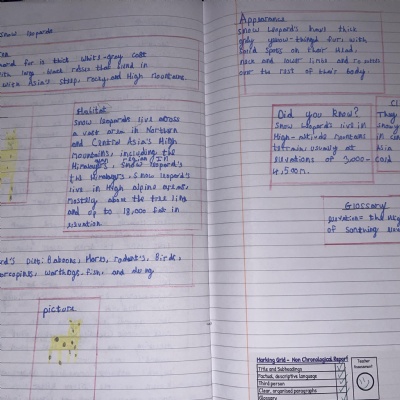 Snow leopards
fur is thick white-gray coat
with large black roses that blend in
with Asia's steep, rocky, and High mountains.
Habitat
Snow leopards live across
a vast area in Northern
and Central Asia's High
mountains, including the
Himalayan region, Snow leopard's
live in High alpine areas,
mostly above the tree line
and up to 18,000 feet in
Diet: Baboons, Hares, rodent's, Birds,
porcupines, warthogs, fish, and
picture
Appearance
Snow leopard's have thick
gray yellow-tinged fur, with
solid spots on their Head,
neck and lower limbs and
over the rest of their body.
Did you know?
Snow leopards live in
High-altitude mountain
terrain usually at
elevations of 3,000-
4,500m.
They
Asia
Glossary
elevation = the
of something
Marking Grid - Non Chronological Report
Title and Subheadings
Factual, descriptive language
Third person
Clear, organised paragraphs
Glossary
Teacher
Assessment